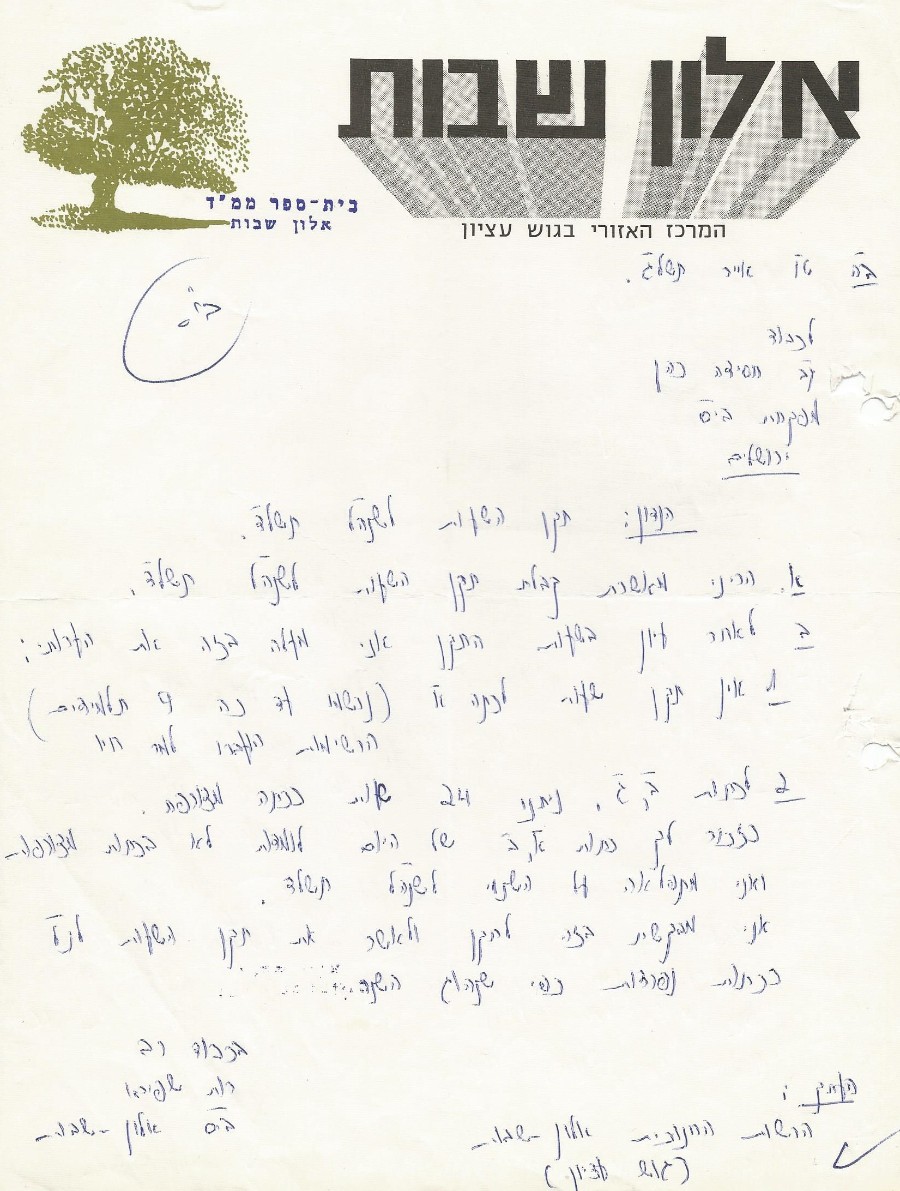 אלון שבות
המרכז האזורי בגוש עציון
בית-ספר ממ"ד
אלון שבות
ב"ה ט"ו אייר תשל"ג.
לכבוד
גב' חסידה כהן
מפקחת בי"ס
ירושלים
הנדון: תקן השעות לשנה"ל תשל"ד.
א. הריני מאשרת קבלת תקן השעות לשנה"ל תשל"ד.
ב לאחר עיון בשעות התקן אני מעלה בזה את הערותי:
1 אין תקן שעות לכתה א' (נרשמו עד כה 9 תלמידים)
הרשימות הועברו
2 לכתות ב', ג', ניתנו 24 שעות ככתה מצורפת.
כזכור לך כתות א', ב' של היום לומדות לא בכתות מצורפות
ואני מתפלאה על השינוי לשנה"ל תשל"ד.
אני מבקשת בזה לתקן ולאשר את תקן השעות לנ"ל
ככתות נפרדות כפי שנהוג השנה
בכבוד רב
רות שפירא
בי"ס אלון-שבות
העתק:
הרשות החנוכית אלון-שבות
(גוש עציון)